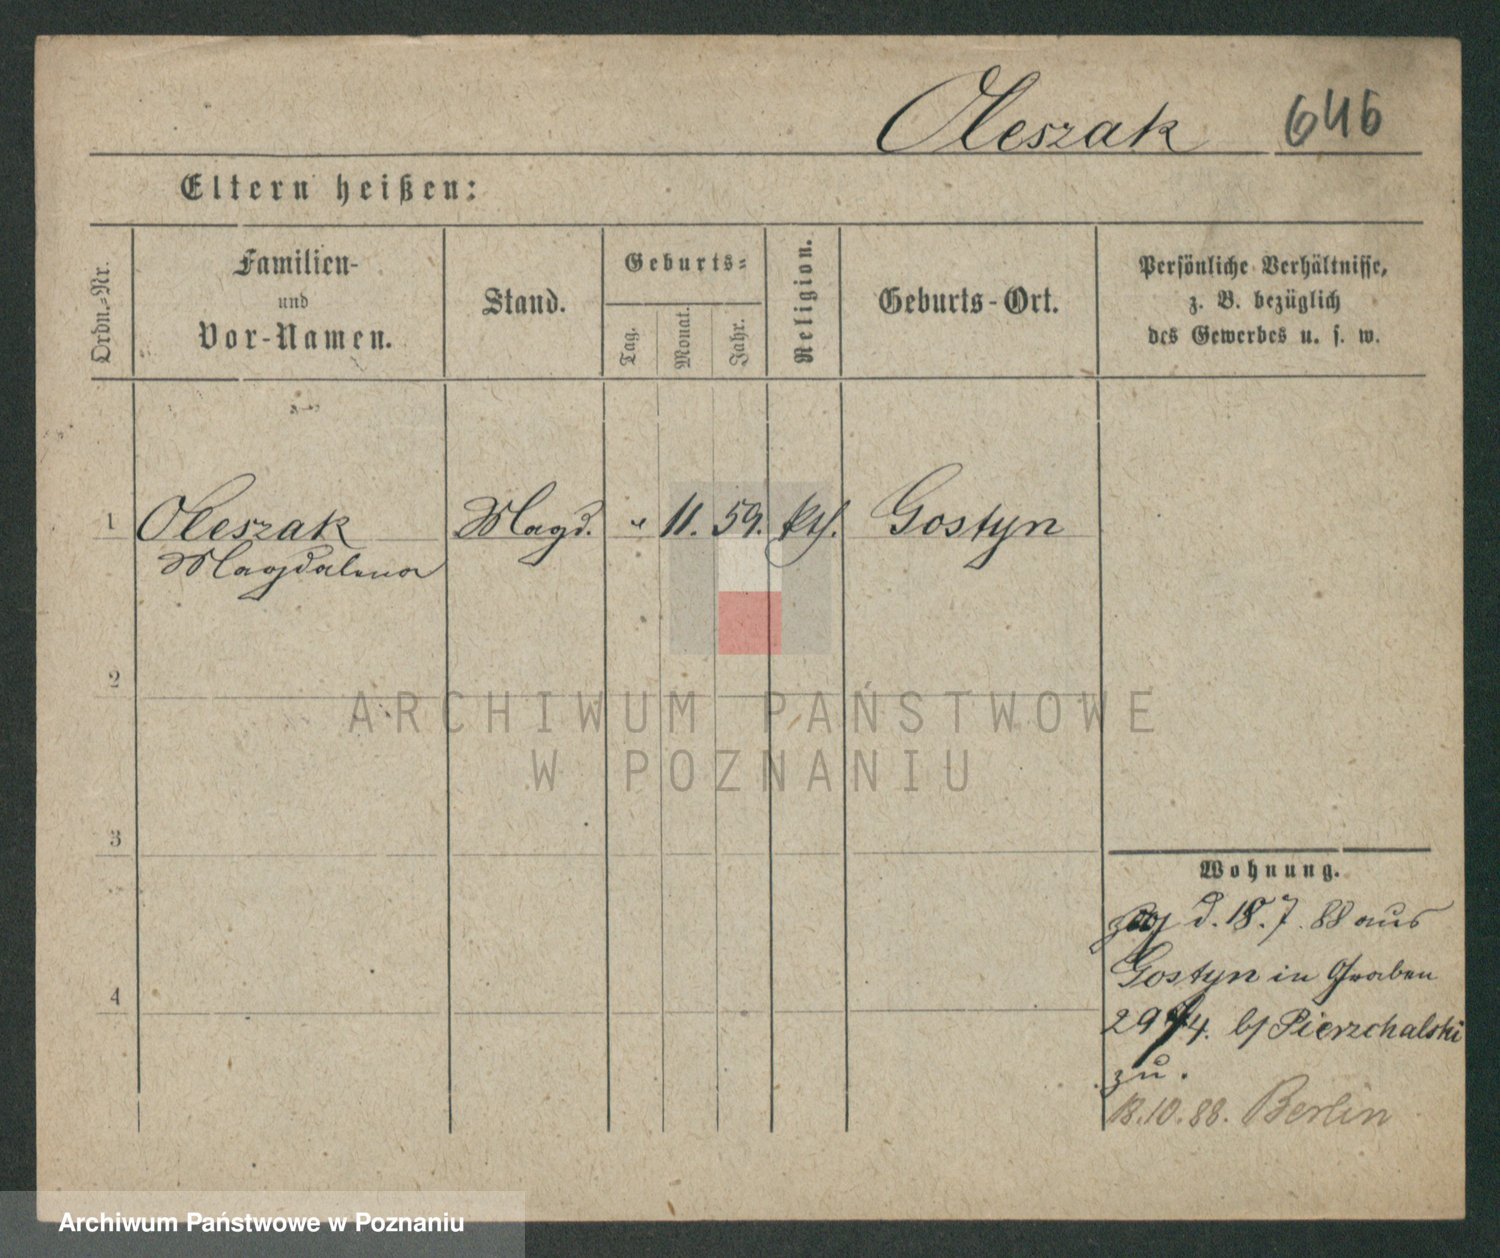 Oleszak 646
Eltern heißen:
Ordn.-Nr.
Familien-
und
Vor-Namen.
Stand.
Geburts-
Tag.
Monat.
Jahr.
Religion.
Geburts-Ort.
Persönliche Verhältnisse,
z. B. bezüglich
des Gewerbes u. s. w.
1 Oleszak Magd. " 11. 59. kth. Gostyn
Magdalena
2
ARCHIWUM PAŃSTWOWE
W POZNANIU
3
Wohnung.
zog d. 18.7.88 aus
Gostyn in Graben
4
b/ Pierzchalski
zu.
18.10.88. Berlin
Archiwum Państwowe w Poznaniu